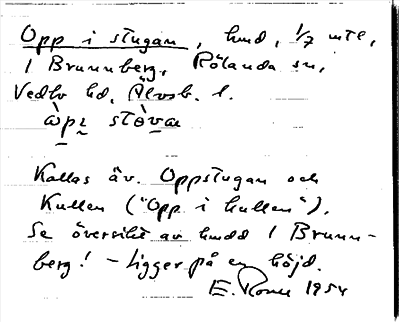 Opp i stugan, hmd, 1/7 mtl,
1 Brunnberg, Rölanda sn,
Vedbo hd, Älvsb. l.
Kallas äv. Oppstugan och
Kullen ("Opp i kullen").
Se översikt av hmdd 1 Brunn-
berg! - Ligger på en höjd.
E. 1954